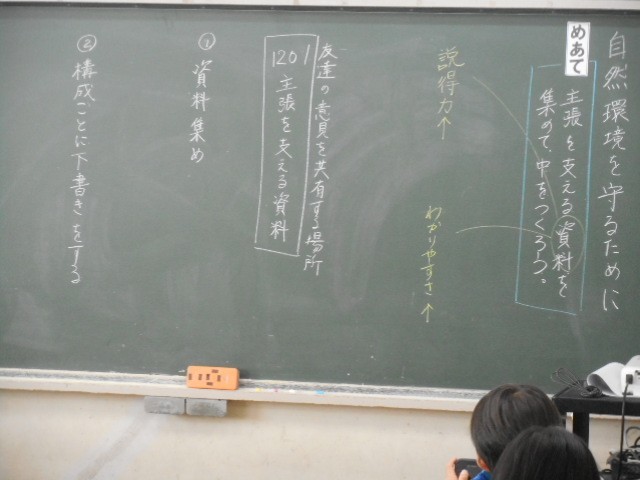 自然環境を守るために
めあて
主張を支える資料を
集めて、中をつくろう。
説得力↑
わかりやすさ↑
友達の意見を共有する場所
1201
主張を支える資料
①資料集め
②構成ごとに下書きをする